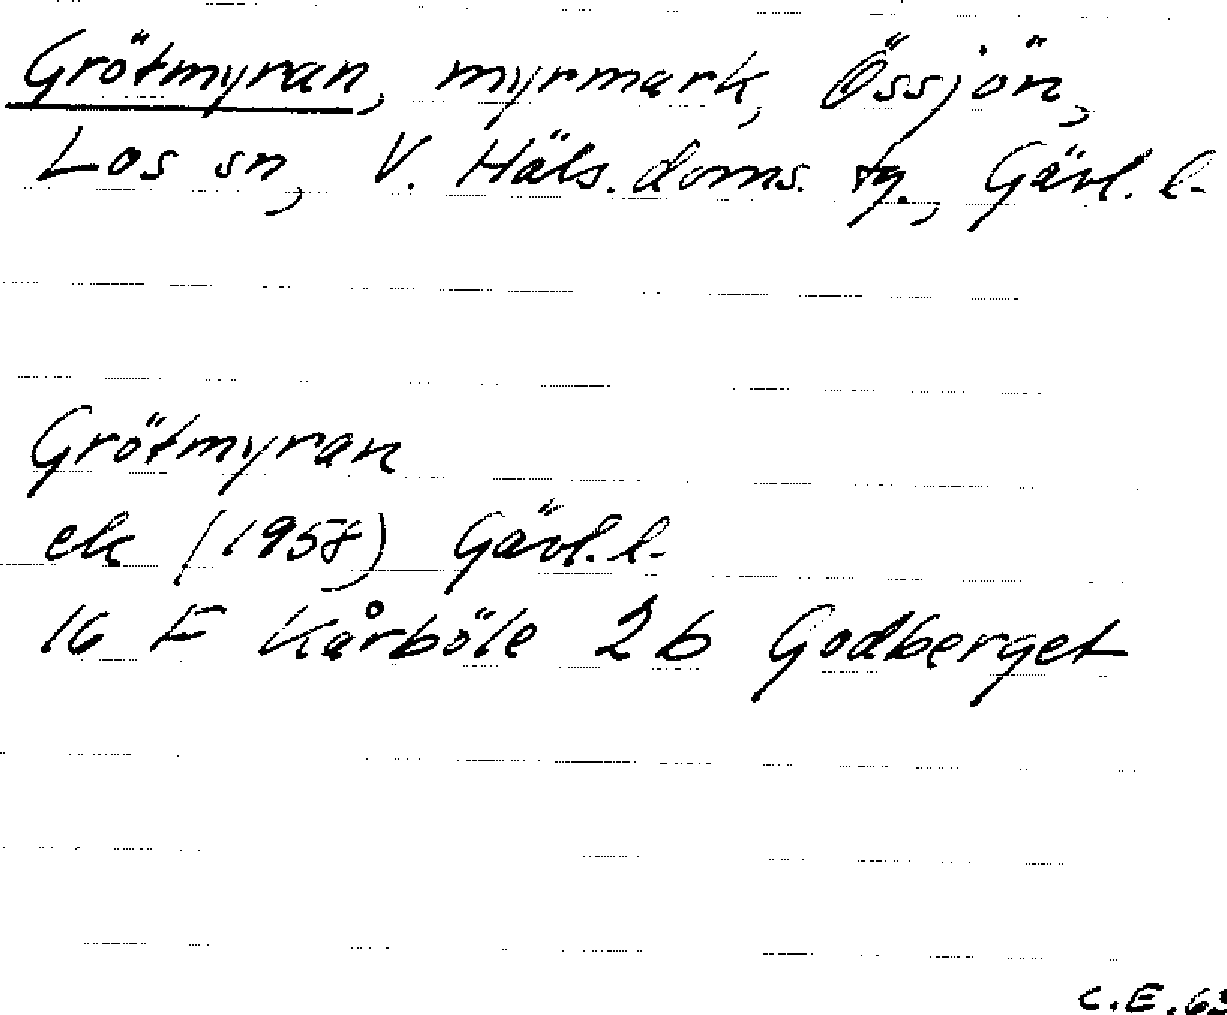 Grötmyran, myrmark, Össjön,
Los sn, V. Häls. doms. tg., Gävl. l.
Grötmyran
ek (1958) Gävl. l.
16 F Kårböle 2 b Godberget
C.E. 63